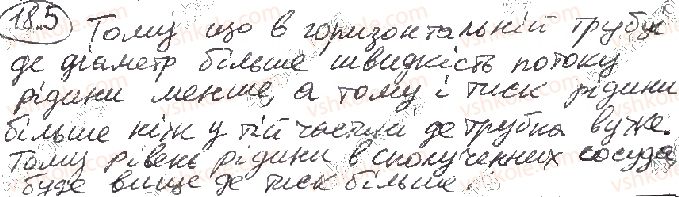 18.5 Тому що в горизонтальній трубці
де діаметр більше швидкість потоку
рідини менше, а тому і тиск рідини
більше ніж у тій частині де трубка вуже.
Тому рівень рідини в сполученних сосуда
буде вище де тиск більше.